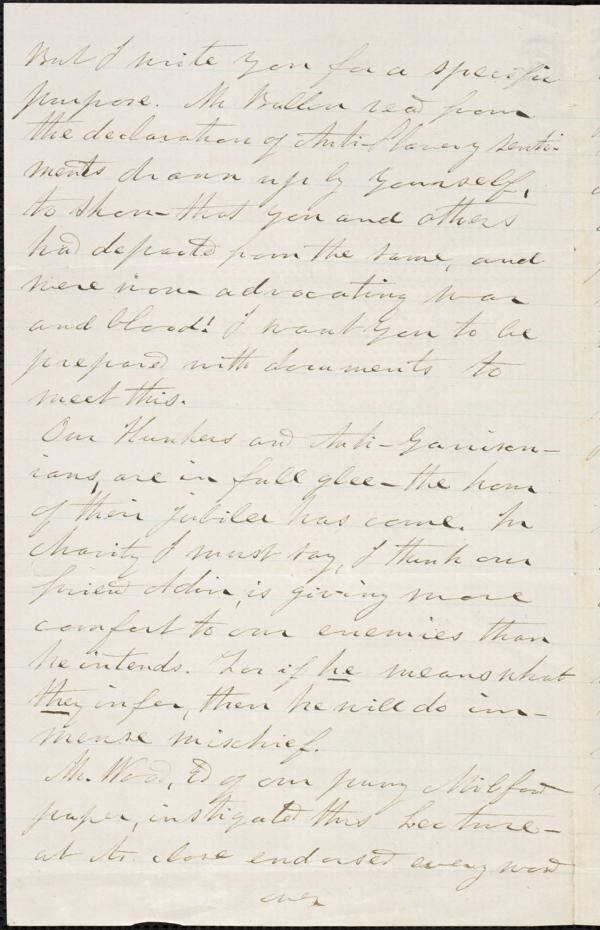 But I write you for a specific
purpose. Mr Ballou read from
the declaration of Anti-Slavery senti-
ments drawn up by yourself,
to show that you and others
had departed from the same, and
were now advocating war
and blood! I want you to be
prepared with documents to
meet this.
Our Hunkers and Anti-Garrison-
ians, are in full glee - the hour
of their jubilee has come. In
charity I must say, I think our
friend Adin, is giving more
comfort to our enemies than
he intends. For if he means what
they infer, then he will do im-
mense mischief.
Mr. Wood, Ed of our puny Milford
paper, instigated this Lecture -
at its close endorsed every word
over